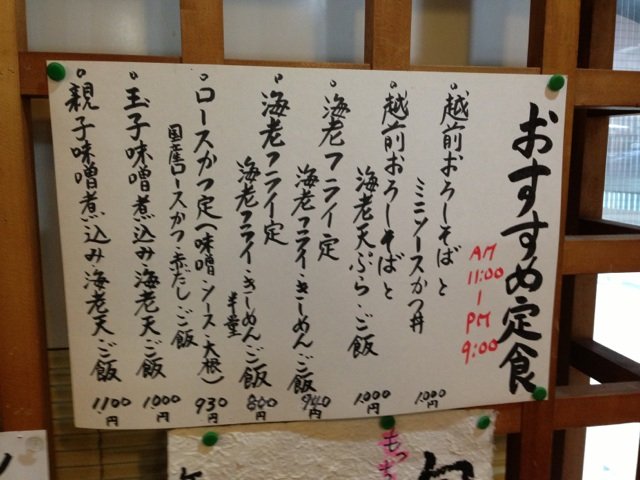 おすすめ定食
AM
11:00
|
PM
9:00
○越前おろしそばと
ミニソースかつ丼
1,000円
○越前おろしそばと
海老天ぷら・ご飯
1,000円
○海老フライ定
海老フライ・きしめん・ご飯
940円
○海老フライ定
海老フライ・きしめん・ご飯
半量
800円
○ロースかつ定(味噌・ソース・大根)
国産ロースかつ・赤だし・ご飯
930円
○玉子味噌煮込み・海老天・ご飯
1,000円
○親子味噌煮込み・海老天・ご飯
1,100円
もっち